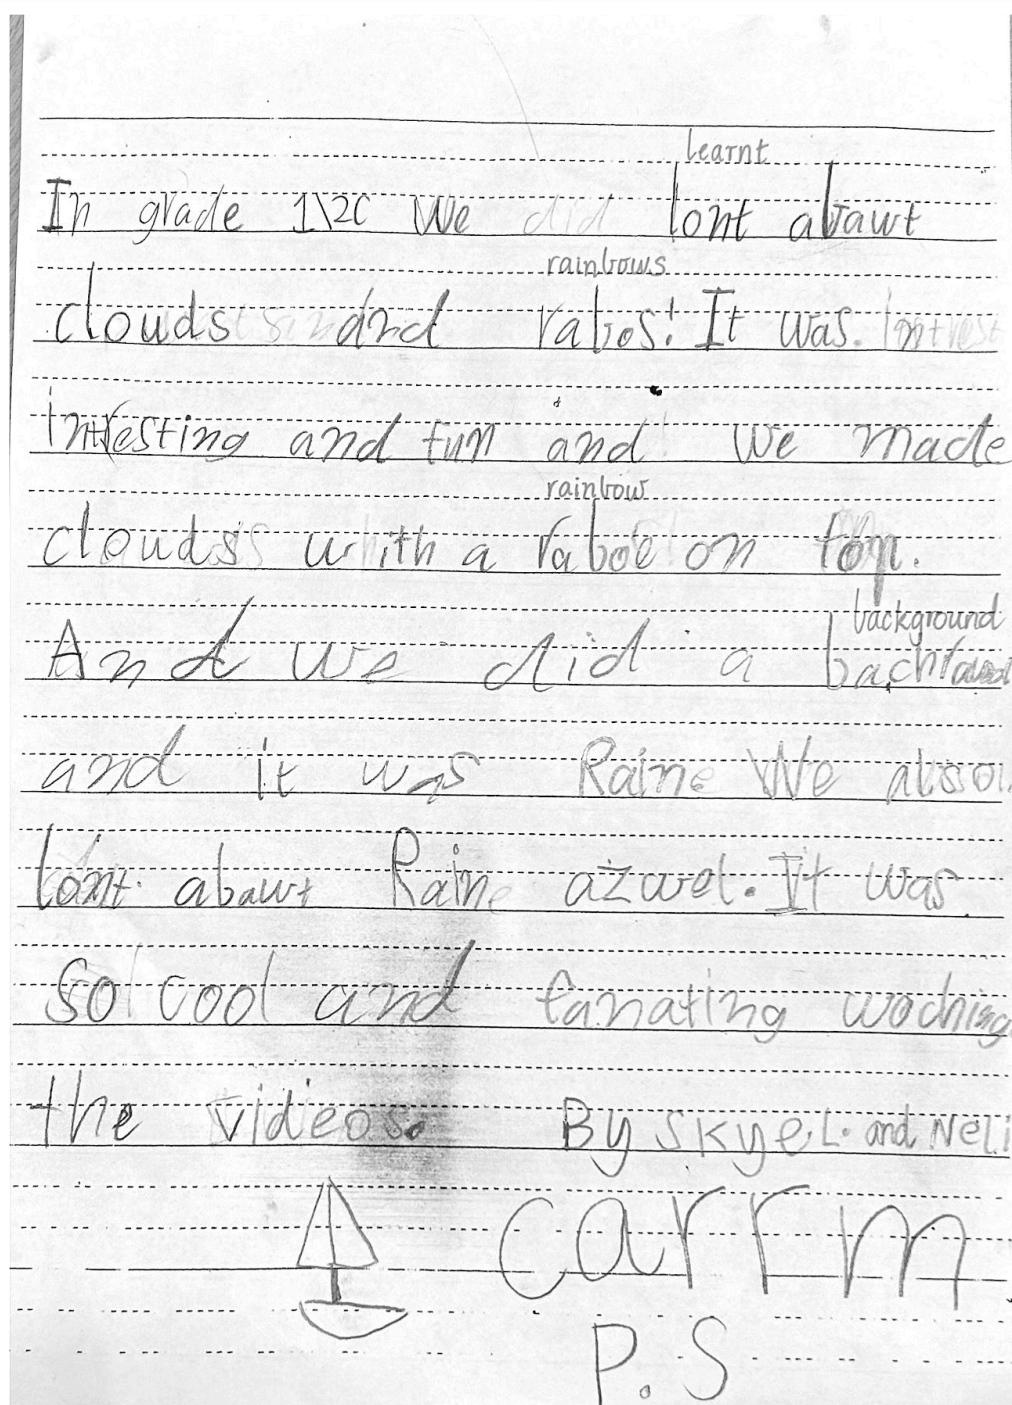 learnt
In grade 1\2C We did lont abawt
rainbows
clouds and rabos! It was.
intresting and fun and we made
rainbow
clouds whith a raboe on top.
background
And we did a bachraund
and it was Raine We also
lont abawt Raine azwel. It was
so cool and fanating woching
the videos. By Skye.L. and Neli
carrm
P.S